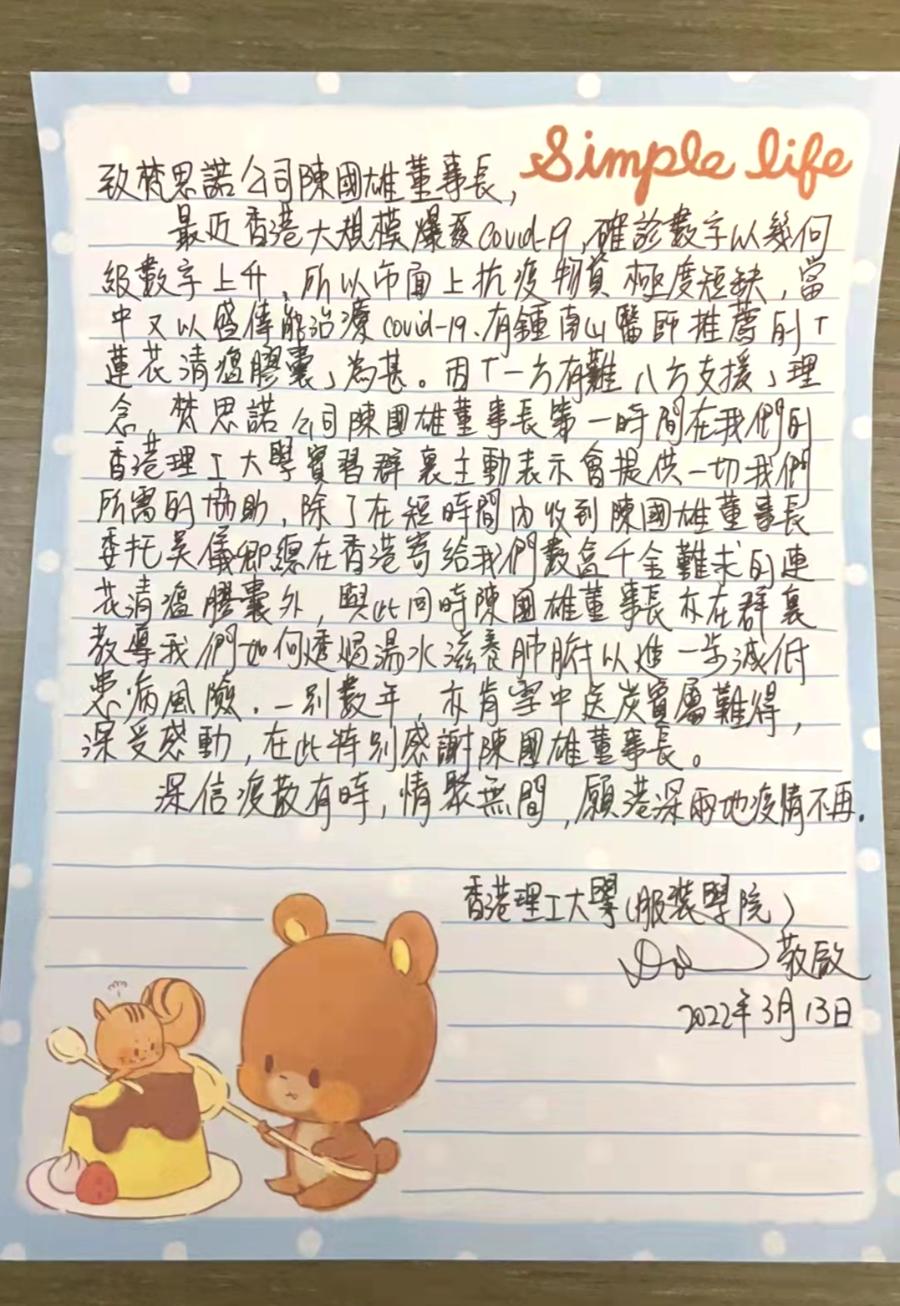 Simple life
致梵思諾公司陳國雄董事長,
最近香港大規模爆發Covid-19,確診數字以幾何
級數字上升,所以市面上抗疫物資極度短缺,當
中又以盛傳能治療covid-19、有鍾南山醫師推薦的「
蓮花清瘟膠囊」為甚。因「一方有難八方支援」理
念,梵思諾公司陳國雄董事長第一時間在我們的
香港理工大學實習群裏主動表示會提供一切我們
所需的協助,除了在短時間內收到陳國雄董事長
委托吴儀卿總在香港寄給我們數盒千金難求的連
花清瘟膠囊外,與此同時陳國雄董事長亦在群裏
教導我們如何透過湯水滋養肺腑以進一步減低
患病風險.一別數年,亦肯雪中送炭實屬難得,
深受感動,在此特別感謝陳國雄董事長。
深信疫散有時,情聚無間,願港深兩地疫情不再.
香港理工大學(服裝學院)
敬啟
2022年3月13日